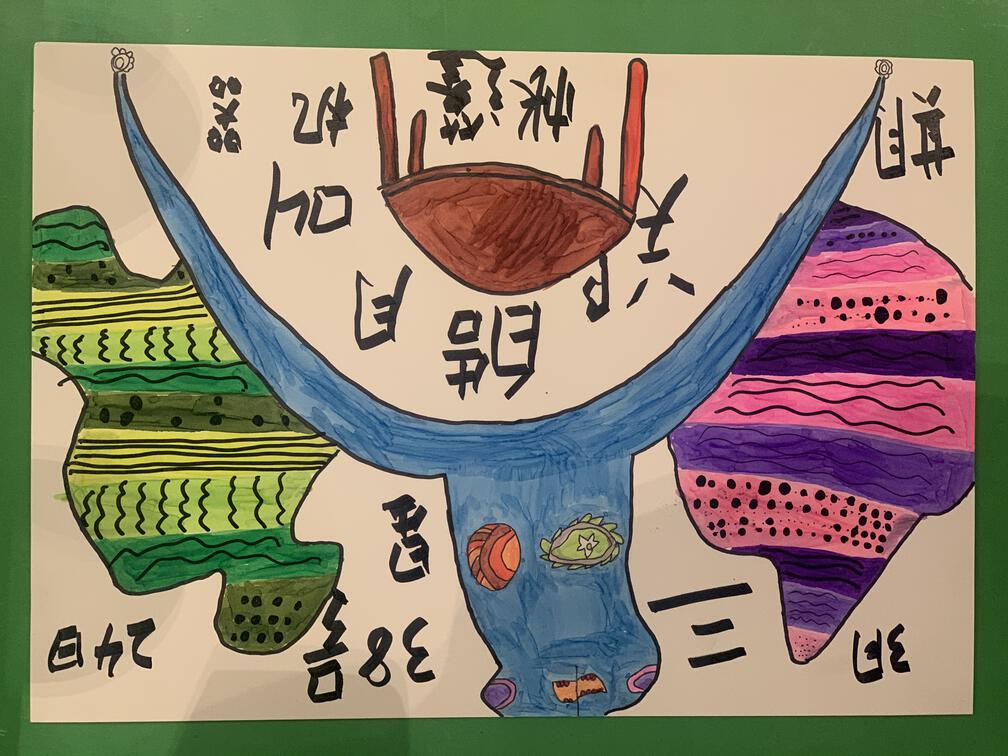 3月
三
38号
24日
星
郑
皓
月
叫
期
帐篷
机
器